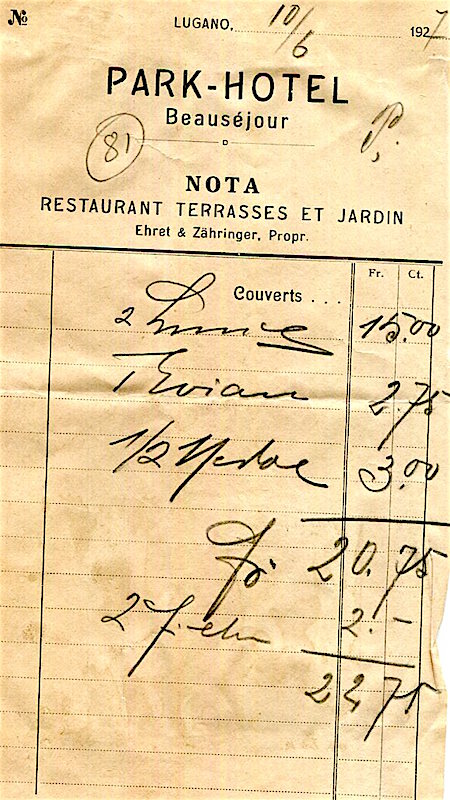 № LUGANO, 10/6 1927
PARK-HOTEL
Beauséjour
81 P.
NOTA
RESTAURANT TERRASSES ET JARDIN
Ehret & Zähringer, Propr.
Fr. Ct.
Couverts . . .
2 15.00
1 Evian 2.75
1/2 3.00
Fr. 20.75
2 2.-
22.75